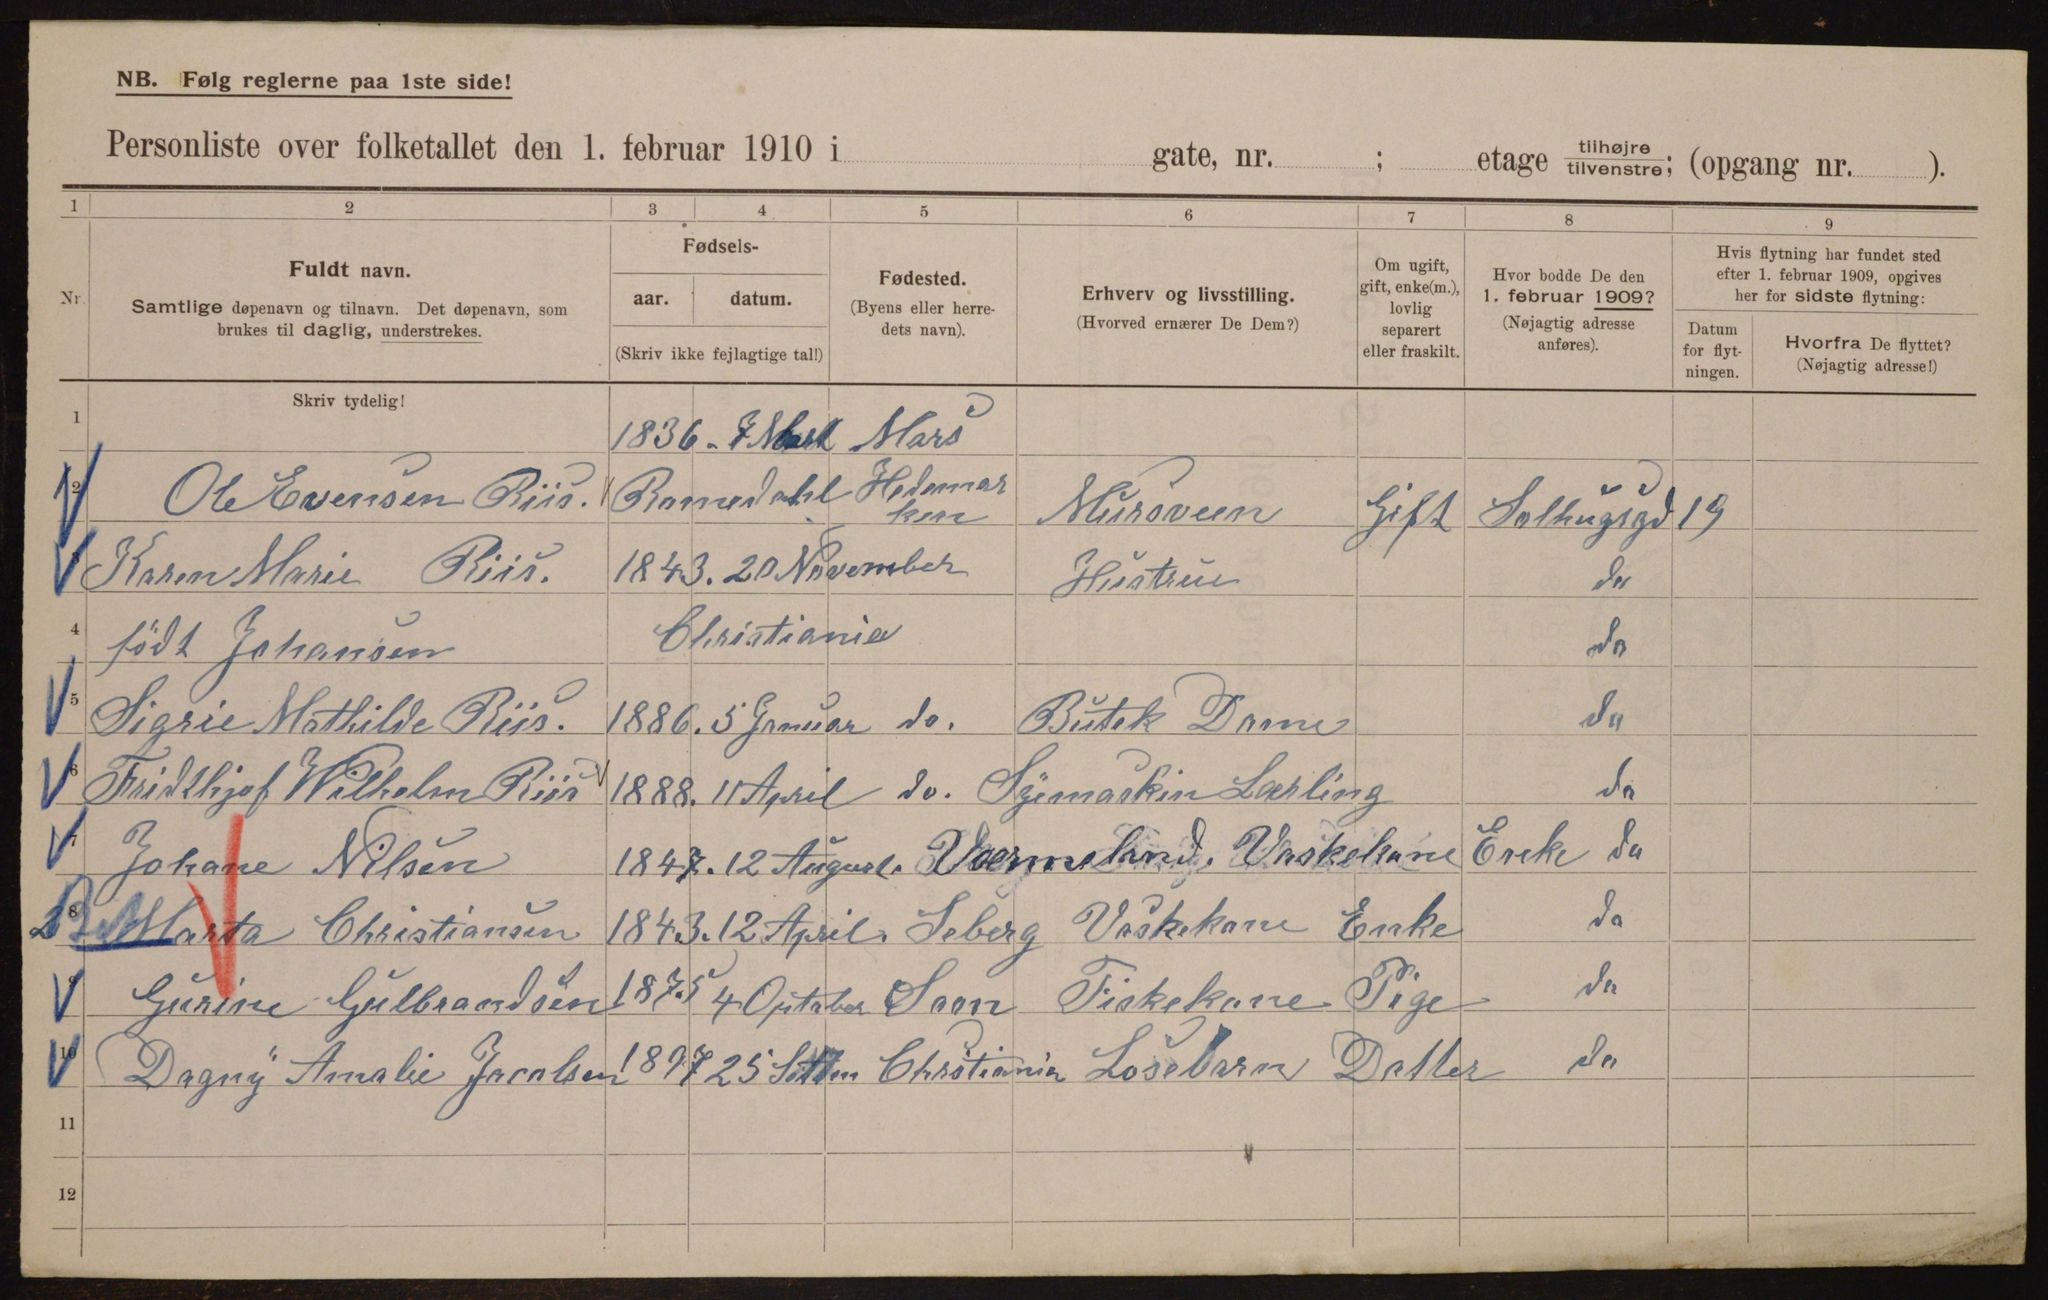 NB. Følg reglerne paa 1ste side!
Personliste over folketallet den 1. februar 1910 i gate, nr. ; etage tilhøjre tilvenstre; (opgang nr. ).
1 2 3 4 5 6 7 8 9
Nr.
Fuldt navn.
Samtlige døpenavn og tilnavn. Det døpenavn, som
brukes til daglig, understrekes.
Fødsels-
aar. datum.
(Skriv ikke fejlagtige tal!)
Fødested.
(Byens eller herre-
dets navn).
Erhverv og livsstilling.
(Hvorved ernærer De Dem?)
Om ugift,
gift, enke(m.),
lovlig
separert
eller fraskilt.
Hvor bodde De den
1. februar 1909?
(Nøjagtig adresse
anføres).
Hvis flytning har fundet sted
efter 1. februar 1909, opgives
her for sidste flytning:
Datum
for flyt-
ningen.
Hvorfra De flyttet?
(Nøjagtig adresse!)
Skriv tydelig!
1 1836. 7 Mars
2 Ole Evensen Riis. Romedahl Hedemar
ken Mursveen Gift Solhugsgd 19
3 Karen Marie Riis. 1843. 20 November Hustrue do
4 født Johansen Christiania do
5 Sigrie Mathilde Riis. 1886. 5 Januar do. Butek Dame do
6 Fridthjof Wilhelm Riis 1888. 11 April do. Symaskin Lærling do
7 Johane Nilsen 1847. 12 August. Værmeland. Vaskekone Enke do
8 Marta Christiansen 1843. 12 April. Seberg Vaskekone Enke do
9 Gurine Gulbrandsen 1875 4 Optober Soon Fiskekone Pige do
10 Dagny Amalie Jacobsen 1897 25 Christiania Losebarn Datter do
11
12